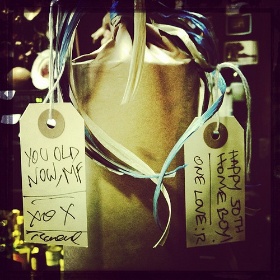 YOU OLD
NOW, MF
XOXO X
HAPPY 50TH
HOME BOY
ONE LOVE :)